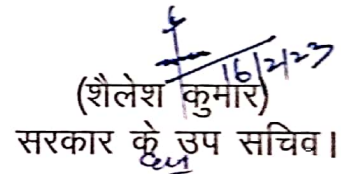 16/2/23
(शैलेश कुमार)
सरकार के उप सचिव।